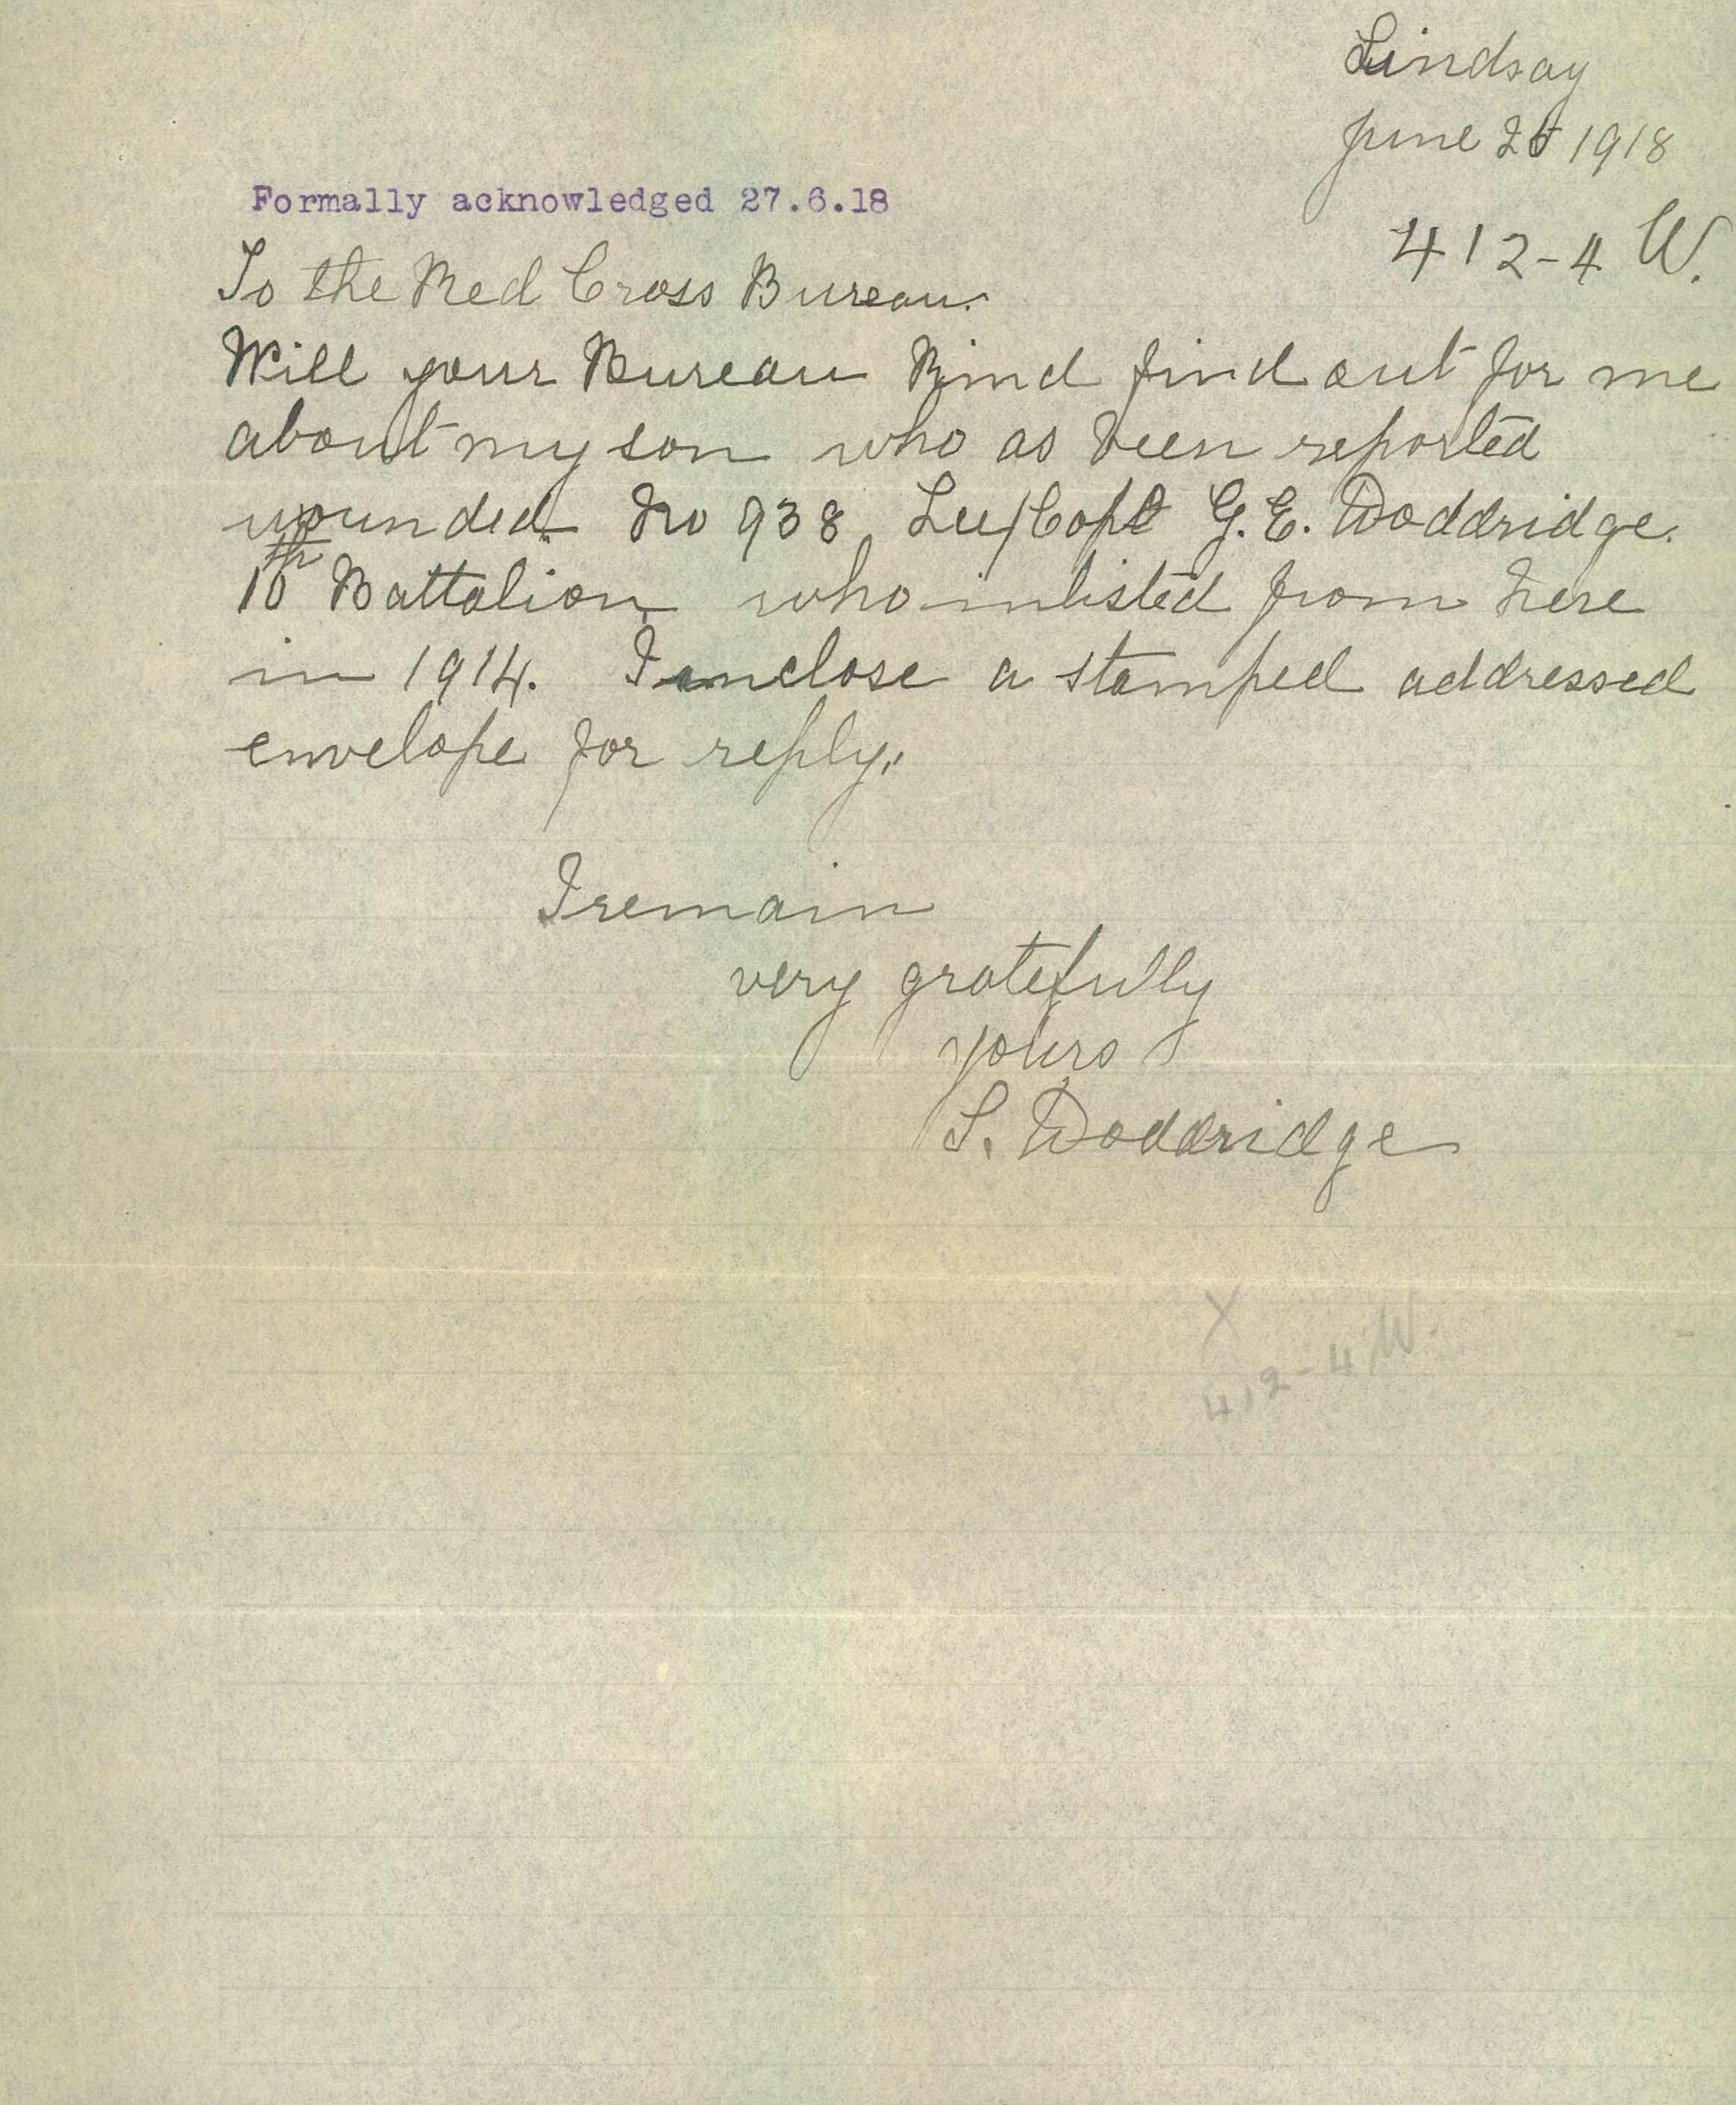 Lindsay
June 26 1918
Formally acknowledged 27.6.18
412-4 W.
To the Red Cross Bureau.
Will your Bureau Kind find out for me
about my son who as been reported
wounded. No 938 Lce/Copl G.E. Doddridge.
10th Battalion who inlisted from here
in 1914. I enclose a stamped addressed
envelope for reply.
I remain
very gratefully
yours
S. Doddridge
X
412-4 W.